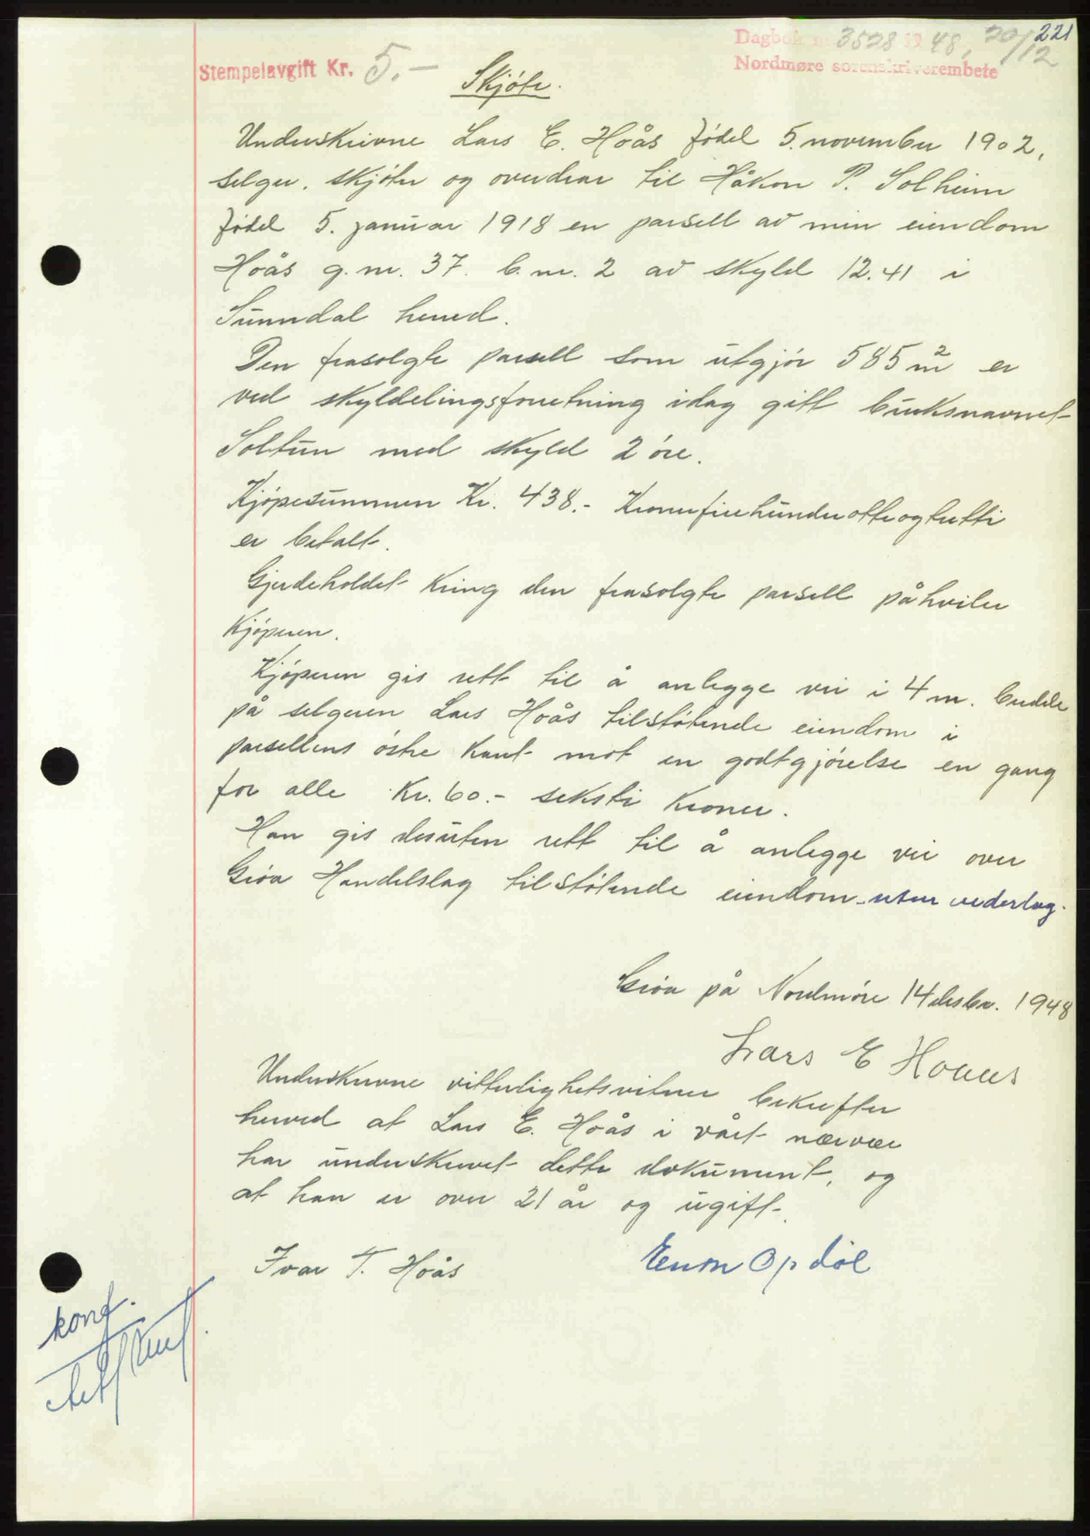 221
Dagbok nr 3528 1948, 20/12
Nordmøre sorenskriverembete
Stempelavgift Kr. 5.-
Skjøte.
Underskrivne Lars E. Hoås født 5. november 1902,
selger, skjøter og overdrar til Håkon P. Solheim
født 5. januar 1918 en parsell av min eiendom
Hoås g.nr. 37. b.nr. 2 av skyld 12.41 i
Sunndal herred.
Den frasolgte parsell som utgjør 585 m² er
ved skylddelingsforretning idag gitt bruksnavnet
Soltun med skyld 2 øre.
Kjøpesummen Kr. 438.- Kronerfirehundreotteogtretti
er betalt.
Gjerdeholdet kring den frasolgte parsell påhviler
Kjøperen.
Kjøperen gis rett til å anlegge vei i 4 m. bredde
på selgeren Lars Hoås tilstøtende eiendom i
parsellens østre kant mot en godtgjørelse en gang
for alle Kr. 60.- seksti kroner.
Han gis desuten rett til å anlegge vei over
Grøa Handelslag tilstøtende eiendom - uten vederlag.
Grøa på Nordmøre 14 desbr. 1948
Lars E Hoaas
Underskrivne vitterlighetsvitner bekrefter
herved at Lars E. Hoås i vårt nærvær
har underskrevet dette dokument, og
at han er over 21 år og ugift.
Ivar T. Hoås
Opdøl
konf.